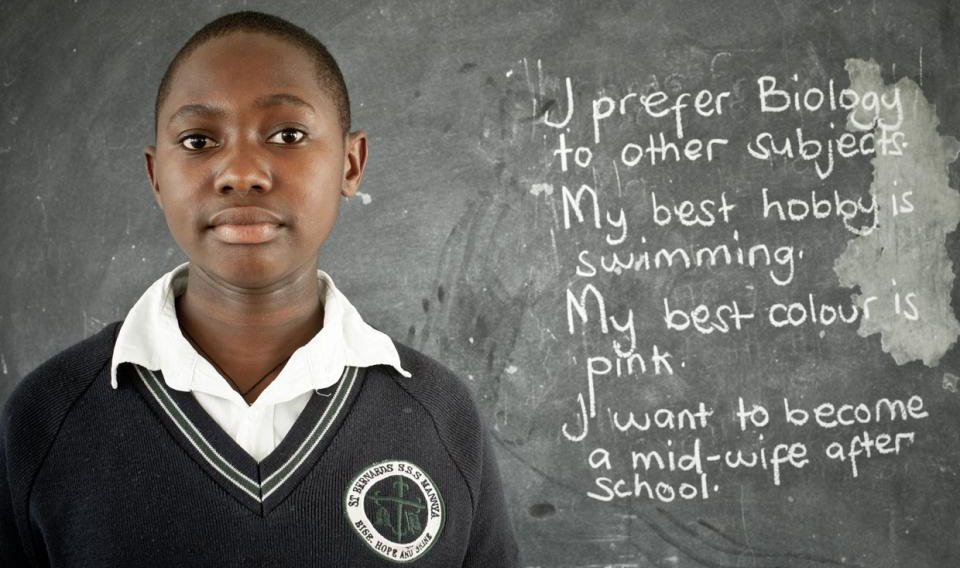 I prefer Biology
to other subjects.
My best hobby is
swimming.
My best colour is
pink.
I want to become
a mid-wife after
school.
ST BERNARDS S.S.S MANNYA
RISE, HOPE AND SHINE